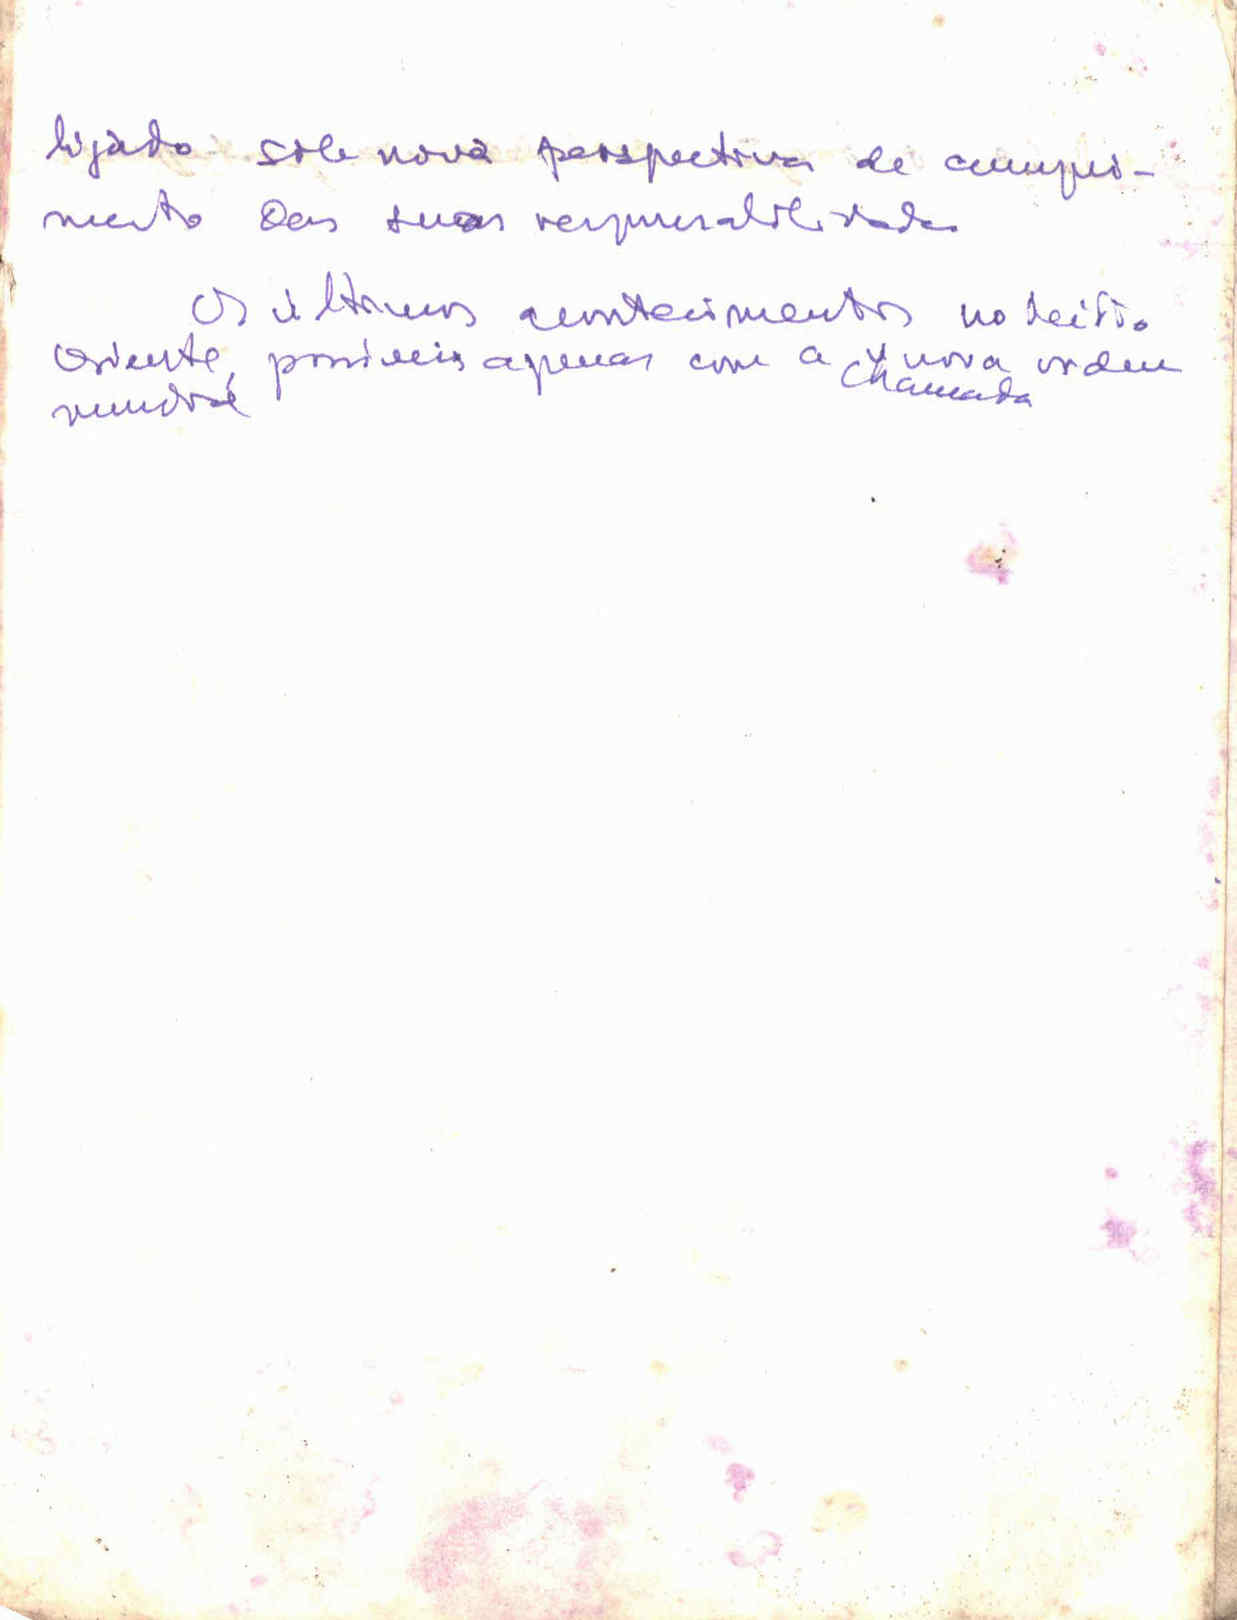 ligado sob nova perspectiva de cumpri-
mento das suas responsabilidades
Os últimos acontecimentos no Médio
Oriente, possíveis apenas com a chamada nova ordem
mundial